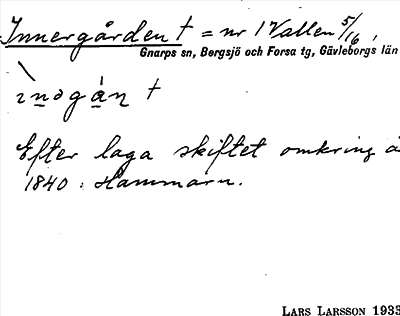 Innergården † = nr 1 Vallen 5/16,
Gnarps sn, Bergsjö och Forsa tg, Gävleborgs län
Efter laga skiftet omkring å
1840 : Hammarn.
LARS LARSSON 1933